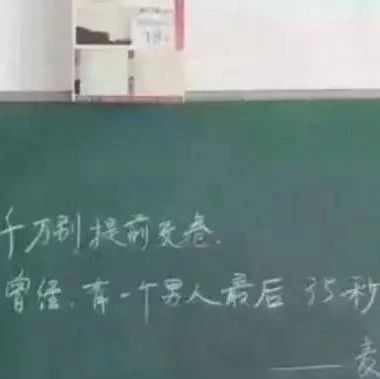 千万别提前交卷.
曾经,有一个男人最后 35秒
——麦